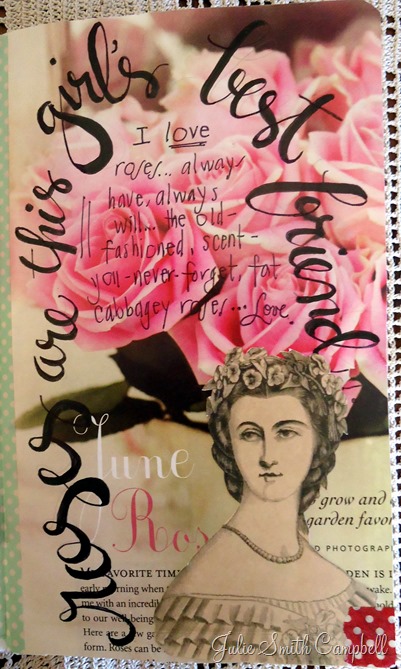 roses are this girl's best friend
I love
roses... always
have, always
will... the old-
fashioned, scent-
you-never-forget, fat
cabbagey roses... Love.
June
Ros
grow and
garden favor
D PHOTOGRAPH
FAVORITE TIM
DEN IS I
early morning when
wake.
me with an incredi
hold
to our well-being
Here are a few ga
form. Roses can be
Julie Smith Campbell